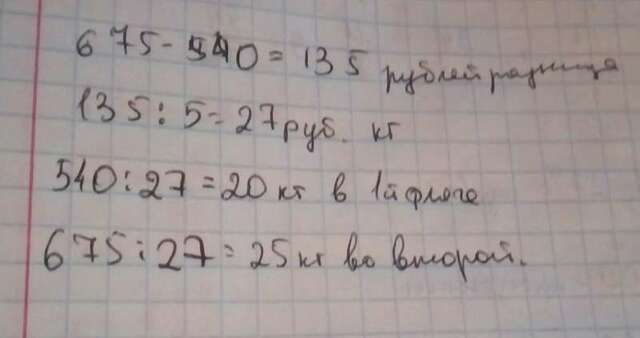 675-540=135 рублей разница
135:5=27 руб. кг
540:27=20 кг в 1й фляге
675:27=25 кг во второй.